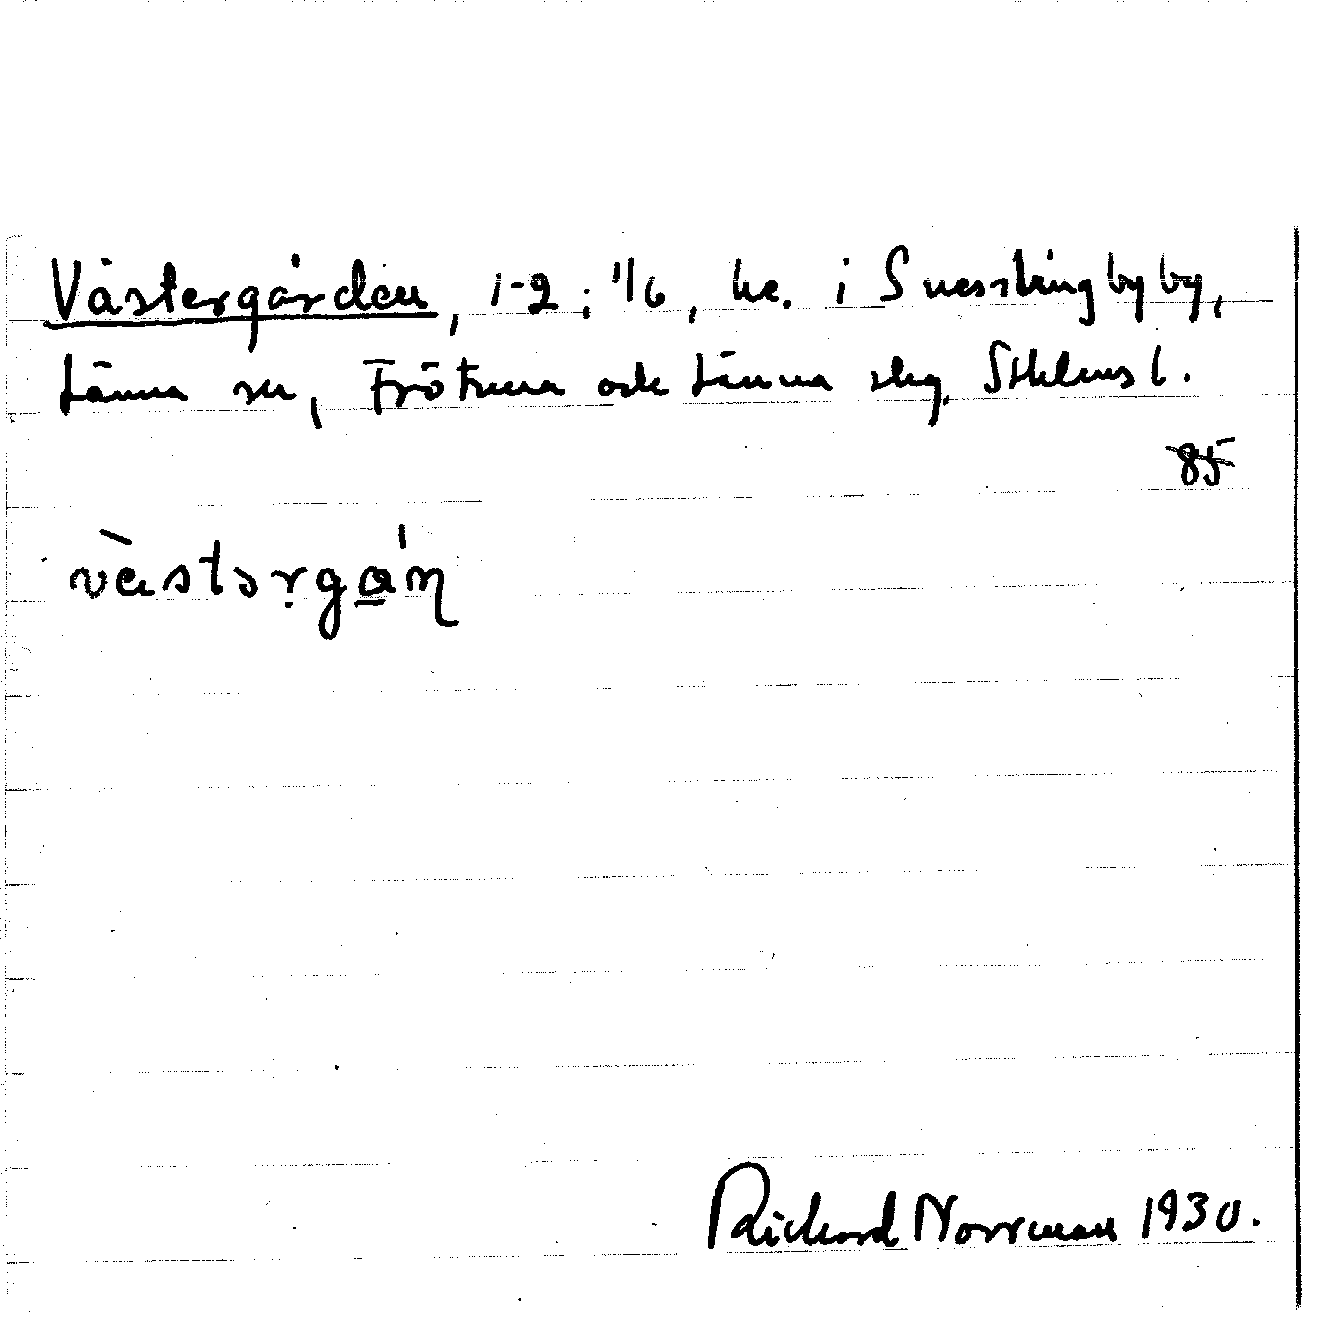 Västergården, 1-2; 1/6, he. i Snesslingby by,
Länna sn, Frötuna och Länna skg. Sthlms l.
85
vὲstərgȧ́n
Richard Norrman 1930.